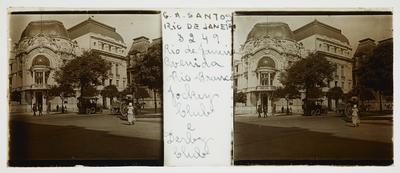 G. A. SANTOS
RIO DE JANEIRO
3249
Rio de Janeiro
Avenida
Rio Branco
Jockey
Club
e
Derby
Club